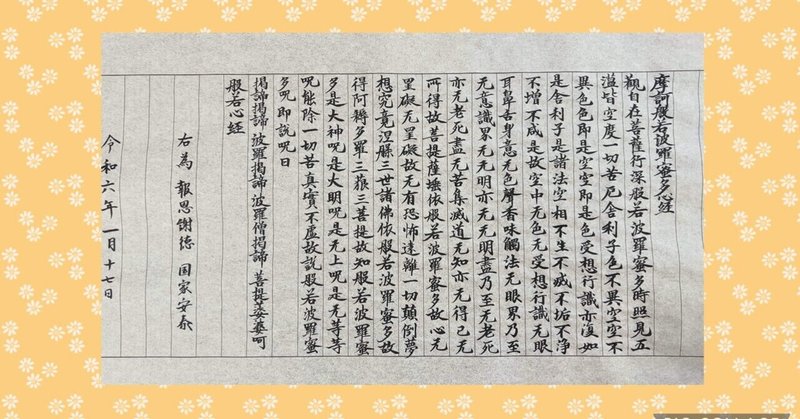 摩訶般若波羅蜜多心経
觀自在菩薩行深般若波羅蜜多時照見五
薀皆空度一切苦厄舎利子色不異空空不
異色色即是空空即是色受想行識亦復如
是舎利子是諸法空相不生不滅不垢不浄
不増不減是故空中无色无受想行識无眼
耳鼻舌身意无色聲香味觸法无眼界乃至
无意識界无无明亦无无明盡乃至无老死
亦无老死盡无苦集滅道无知亦无得已无
所得故菩提薩埵依般若波羅蜜多故心无
罣礙无罣礙故无有恐怖遠離一切顛倒夢
想究竟涅槃三世諸佛依般若波羅蜜多故
得阿耨多羅三藐三菩提故知般若波羅蜜
多是大神呪是大明呪是无上呪是无等等
呪能除一切苦真實不虚故説般若波羅蜜
多呪即説呪曰
揭諦揭諦 波羅揭諦 波羅僧揭諦 菩提薩婆呵
般若心経
右為 報恩謝徳 国家安泰
令和六年一月十七日